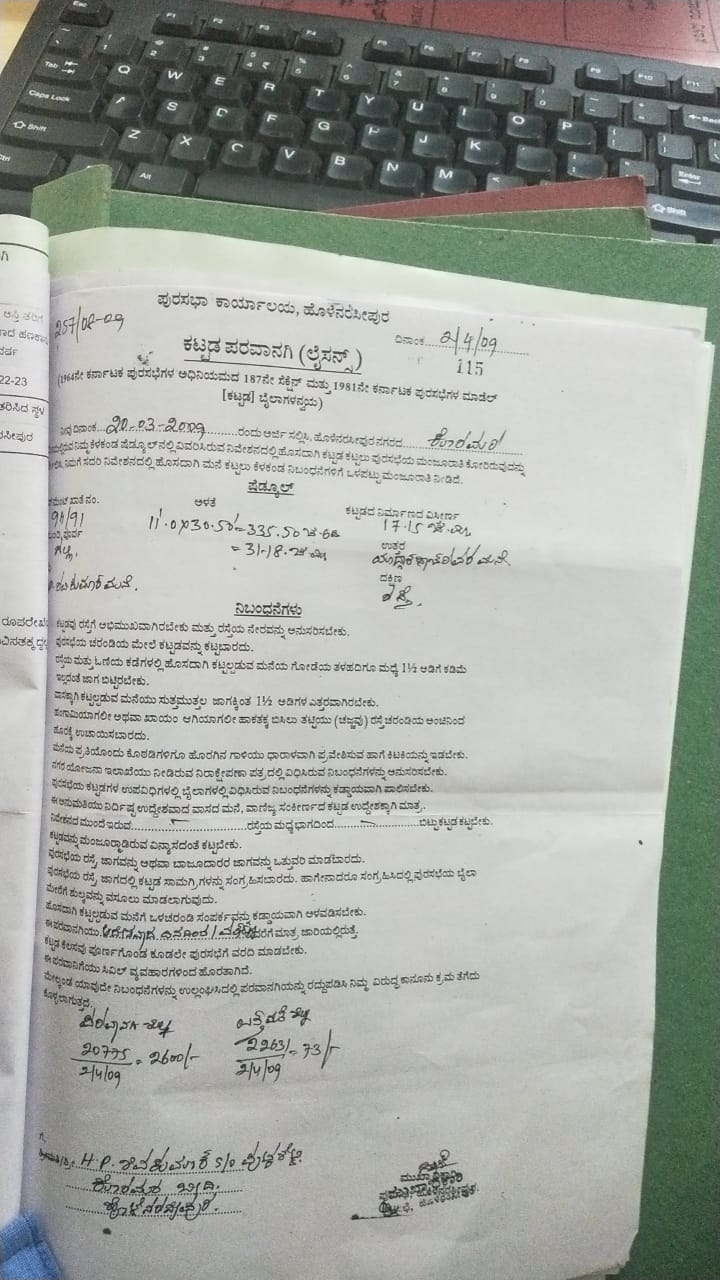 Esc F1 F2 F3 F4 F5 F6 F7 F8 F9 F10 F11
Tab Q W E R T Y U I O P
Caps Lock A S D F G H J K
Shift Z X C V B N M
Alt
Enter
Shift
22-23
257/08-09
ಪುರಸಭಾ ಕಾರ್ಯಾಲಯ, ಹೊಳೆನರಸೀಪುರ
ದಿನಾಂಕ 2/4/09
ಕಟ್ಟಡ ಪರವಾನಗಿ (ಲೈಸನ್ಸ್)
115
(1964ನೇ ಕರ್ನಾಟಕ ಪುರಸಭೆಗಳ ಅಧಿನಿಯಮದ 187ನೇ ಸೆಕ್ಷನ್ ಮತ್ತು 1981ನೇ ಕರ್ನಾಟಕ ಪುರಸಭೆಗಳ ಮಾಡೆಲ್
[ಕಟ್ಟಡ] ಬೈಲಾಗಳನ್ವಯ)
ನೀವು ದಿನಾಂಕ 20-03-2009 ರಂದು ಅರ್ಜಿ ಸಲ್ಲಿಸಿ, ಹೊಳೆನರಸೀಪುರ ನಗರದ
ನಿಮ್ಮ ಕೆಳಕಂಡ ಷೆಡ್ಯೂಲ್‌ನಲ್ಲಿ ವಿವರಿಸಿರುವ ನಿವೇಶನದಲ್ಲಿ ಹೊಸದಾಗಿ ಕಟ್ಟಡ ಕಟ್ಟಲು ಪುರಸಭೆಯ ಮಂಜೂರಾತಿ ಕೋರಿರುವುದನ್ನು
ನಿಮಗೆ ಸದರಿ ನಿವೇಶನದಲ್ಲಿ ಹೊಸದಾಗಿ ಮನೆ ಕಟ್ಟಲು ಕೆಳಕಂಡ ನಿಬಂಧನೆಗಳಿಗೆ ಒಳಪಟ್ಟು ಮಂಜೂರಾತಿ ನೀಡಿದೆ.
ಷೆಡ್ಯೂಲ್
ಖಾತೆ ನಂ. ಅಳತೆ ಕಟ್ಟಡದ ನಿರ್ಮಾಣದ ವಿಸೀರ್ಣ
94/91 11.0X30.50=335.50 17.15
ಉತ್ತರ
=31.18
ದಕ್ಷಿಣ
ರಸ್ತೆ
ನಿಬಂಧನೆಗಳು
ಕಟ್ಟಡವು ರಸ್ತೆಗೆ ಅಭಿಮುಖವಾಗಿರಬೇಕು ಮತ್ತು ರಸ್ತೆಯ ನೇರವನ್ನು ಅನುಸರಿಸಬೇಕು.
ಪುರಸಭೆಯ ಚರಂಡಿಯ ಮೇಲೆ ಕಟ್ಟಡವನ್ನು ಕಟ್ಟಬಾರದು.
ರಸ್ತೆಯ ಮತ್ತು ಓಣಿಯ ಕಡೆಗಳಲ್ಲಿ ಹೊಸದಾಗಿ ಕಟ್ಟಲ್ಪಡುವ ಮನೆಯ ಗೋಡೆಯ ತಳಹದಿಗೂ ಮಧ್ಯೆ 1½ ಅಡಿಗೆ ಕಡಿಮೆ
ಇಲ್ಲದಂತೆ ಜಾಗ ಬಿಟ್ಟಿರಬೇಕು.
ವಾಸಕ್ಕಾಗಿ ಕಟ್ಟಲ್ಪಡುವ ಮನೆಯು ಸುತ್ತಮುತ್ತಲ ಜಾಗಕ್ಕಿಂತ 1½ ಅಡಿಗಳ ಎತ್ತರವಾಗಿರಬೇಕು.
ಹಂಗಾಮಿಯಾಗಲೀ ಅಥವಾ ಖಾಯಂ ಆಗಿಯಾಗಲೀ ಹಾಕತಕ್ಕ ಬಿಸಿಲು ತಟ್ಟಿಯು (ಚಜ್ಜವು) ರಸ್ತೆಚರಂಡಿಯ ಅಂಚಿನಿಂದ
ಹೊರಕ್ಕೆ ಉಚಾಯಿಸಬಾರದು.
ಮನೆಯ ಪ್ರತಿಯೊಂದು ಕೊಠಡಿಗಳಿಗೂ ಹೊರಗಿನ ಗಾಳಿಯು ಧಾರಾಳವಾಗಿ ಪ್ರವೇಶಿಸುವ ಹಾಗೆ ಕಿಟಕಿಯನ್ನು ಇಡಬೇಕು.
ನಗರ ಯೋಜನಾ ಇಲಾಖೆಯು ನೀಡಿರುವ ನಿರಾಕ್ಷೇಪಣಾ ಪತ್ರದಲ್ಲಿ ವಿಧಿಸಿರುವ ನಿಬಂಧನೆಗಳನ್ನು ಅನುಸರಿಸಬೇಕು.
ಪುರಸಭೆಯ ಕಟ್ಟಡಗಳ ಉಪವಿಧಿಗಳಲ್ಲಿ ಬೈಲಾಗಳಲ್ಲಿ ವಿಧಿಸಿರುವ ನಿಬಂಧನೆಗಳನ್ನು ಕಡ್ಡಾಯವಾಗಿ ಪಾಲಿಸಬೇಕು.
ಈ ಅನುಮತಿಯು ನಿರ್ದಿಷ್ಟ ಉದ್ದೇಶವಾದ ವಾಸದ ಮನೆ, ವಾಣಿಜ್ಯ ಸಂಕೀರ್ಣದ ಕಟ್ಟಡ ಉದ್ದೇಶಕ್ಕಾಗಿ ಮಾತ್ರ.
ನಿವೇಶನದ ಮುಂದೆ ಇರುವ ರಸ್ತೆಯ ಮಧ್ಯಭಾಗದಿಂದ ಬಿಟ್ಟು ಕಟ್ಟಡ ಕಟ್ಟಬೇಕು.
ಕಟ್ಟಡವನ್ನು ಮಂಜೂರ್ಮಾಡಿರುವ ವಿನ್ಯಾಸದಂತೆ ಕಟ್ಟಬೇಕು.
ಪುರಸಭೆಯ ರಸ್ತೆ, ಜಾಗವನ್ನು ಅಥವಾ ಬಾಜೂದಾರರ ಜಾಗವನ್ನು ಒತ್ತುವರಿ ಮಾಡಬಾರದು.
ಪುರಸಭೆಯ ರಸ್ತೆ, ಜಾಗದಲ್ಲಿ ಕಟ್ಟಡ ಸಾಮಗ್ರಿಗಳನ್ನು ಸಂಗ್ರಹಿಸಬಾರದು. ಹಾಗೇನಾದರೂ ಸಂಗ್ರಹಿಸಿದಲ್ಲಿ ಪುರಸಭೆಯ ಬೈಲಾ
ಮೇರೆಗೆ ಶುಲ್ಕವನ್ನು ವಸೂಲು ಮಾಡಲಾಗುವುದು.
ಹೊಸದಾಗಿ ಕಟ್ಟಲ್ಪಡುವ ಮನೆಗೆ ಒಳಚರಂಡಿ ಸಂಪರ್ಕವನ್ನು ಕಡ್ಡಾಯವಾಗಿ ಅಳವಡಿಸಬೇಕು.
ಈ ಪರವಾನಗಿಯು ವರೆಗೆ ಮಾತ್ರ ಜಾರಿಯಲ್ಲಿರುತ್ತೆ
ಕಟ್ಟಡ ಕೆಲಸವು ಪೂರ್ಣಗೊಂಡ ಕೂಡಲೇ ಪುರಸಭೆಗೆ ವರದಿ ಮಾಡಬೇಕು.
ಈ ಪರವಾನಿಗೆಯು ಸಿವಿಲ್ ವ್ಯವಹಾರಗಳಿಂದ ಹೊರತಾಗಿದೆ.
ಮೇಲ್ಕಂಡ ಯಾವುದೇ ನಿಬಂಧನೆಗಳನ್ನು ಉಲ್ಲಂಘಿಸಿದಲ್ಲಿ ಪರವಾನಗಿಯನ್ನು ರದ್ದುಪಡಿಸಿ ನಿಮ್ಮ ವಿರುದ್ಧ ಕಾನೂನು ಕ್ರಮ ತೆಗೆದು
ಕೊಳ್ಳಲಾಗುತ್ತದೆ.
20775 = 2600/- 2263 = 73/-
2/4/09 2/4/09
H.P. ಶಿವಕುಮಾರ್ S/o ಪುಟ್ಟಶೆಟ್ಟಿ
ಬೀದಿ.
ಹೊಳೆನರಸೀಪುರ.
ಮುಖ್ಯಾಧಿಕಾರಿ